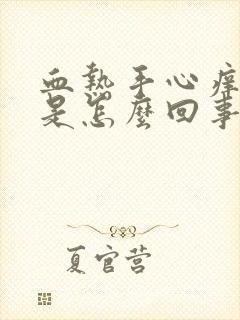 血热手心痒
是怎麽回事
夏官营